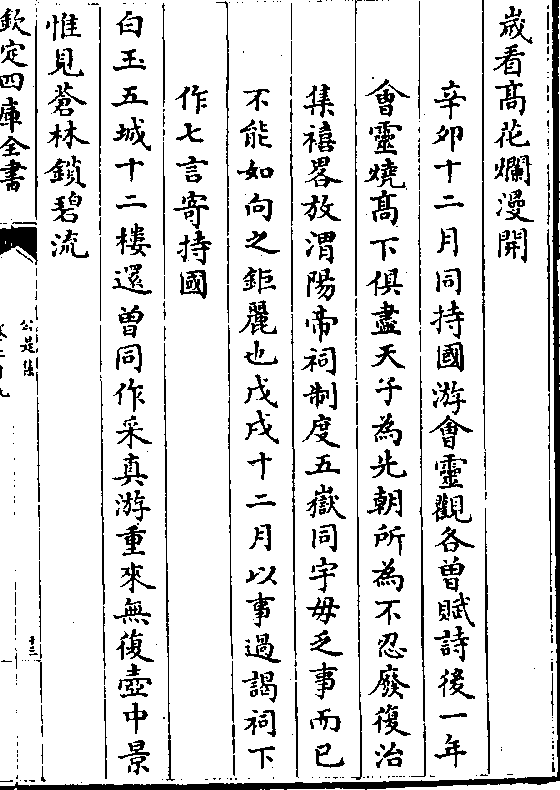 歲看髙花爛漫開
辛卯十二月同持國游會靈觀各曾賦詩後一年
會靈燒髙下俱盡天子為先朝所為不忍廢復治
集禧畧放渭陽帝祠制度五嶽同宇毋乏事而已
不能如向之鉅麗也戊戌十二月以事過謁祠下
作七言寄持國
白玉五城十二樓還曾同作采真游重來無復壺中景
惟見蒼林鎖碧流
欽定四庫全書
公是集
十三